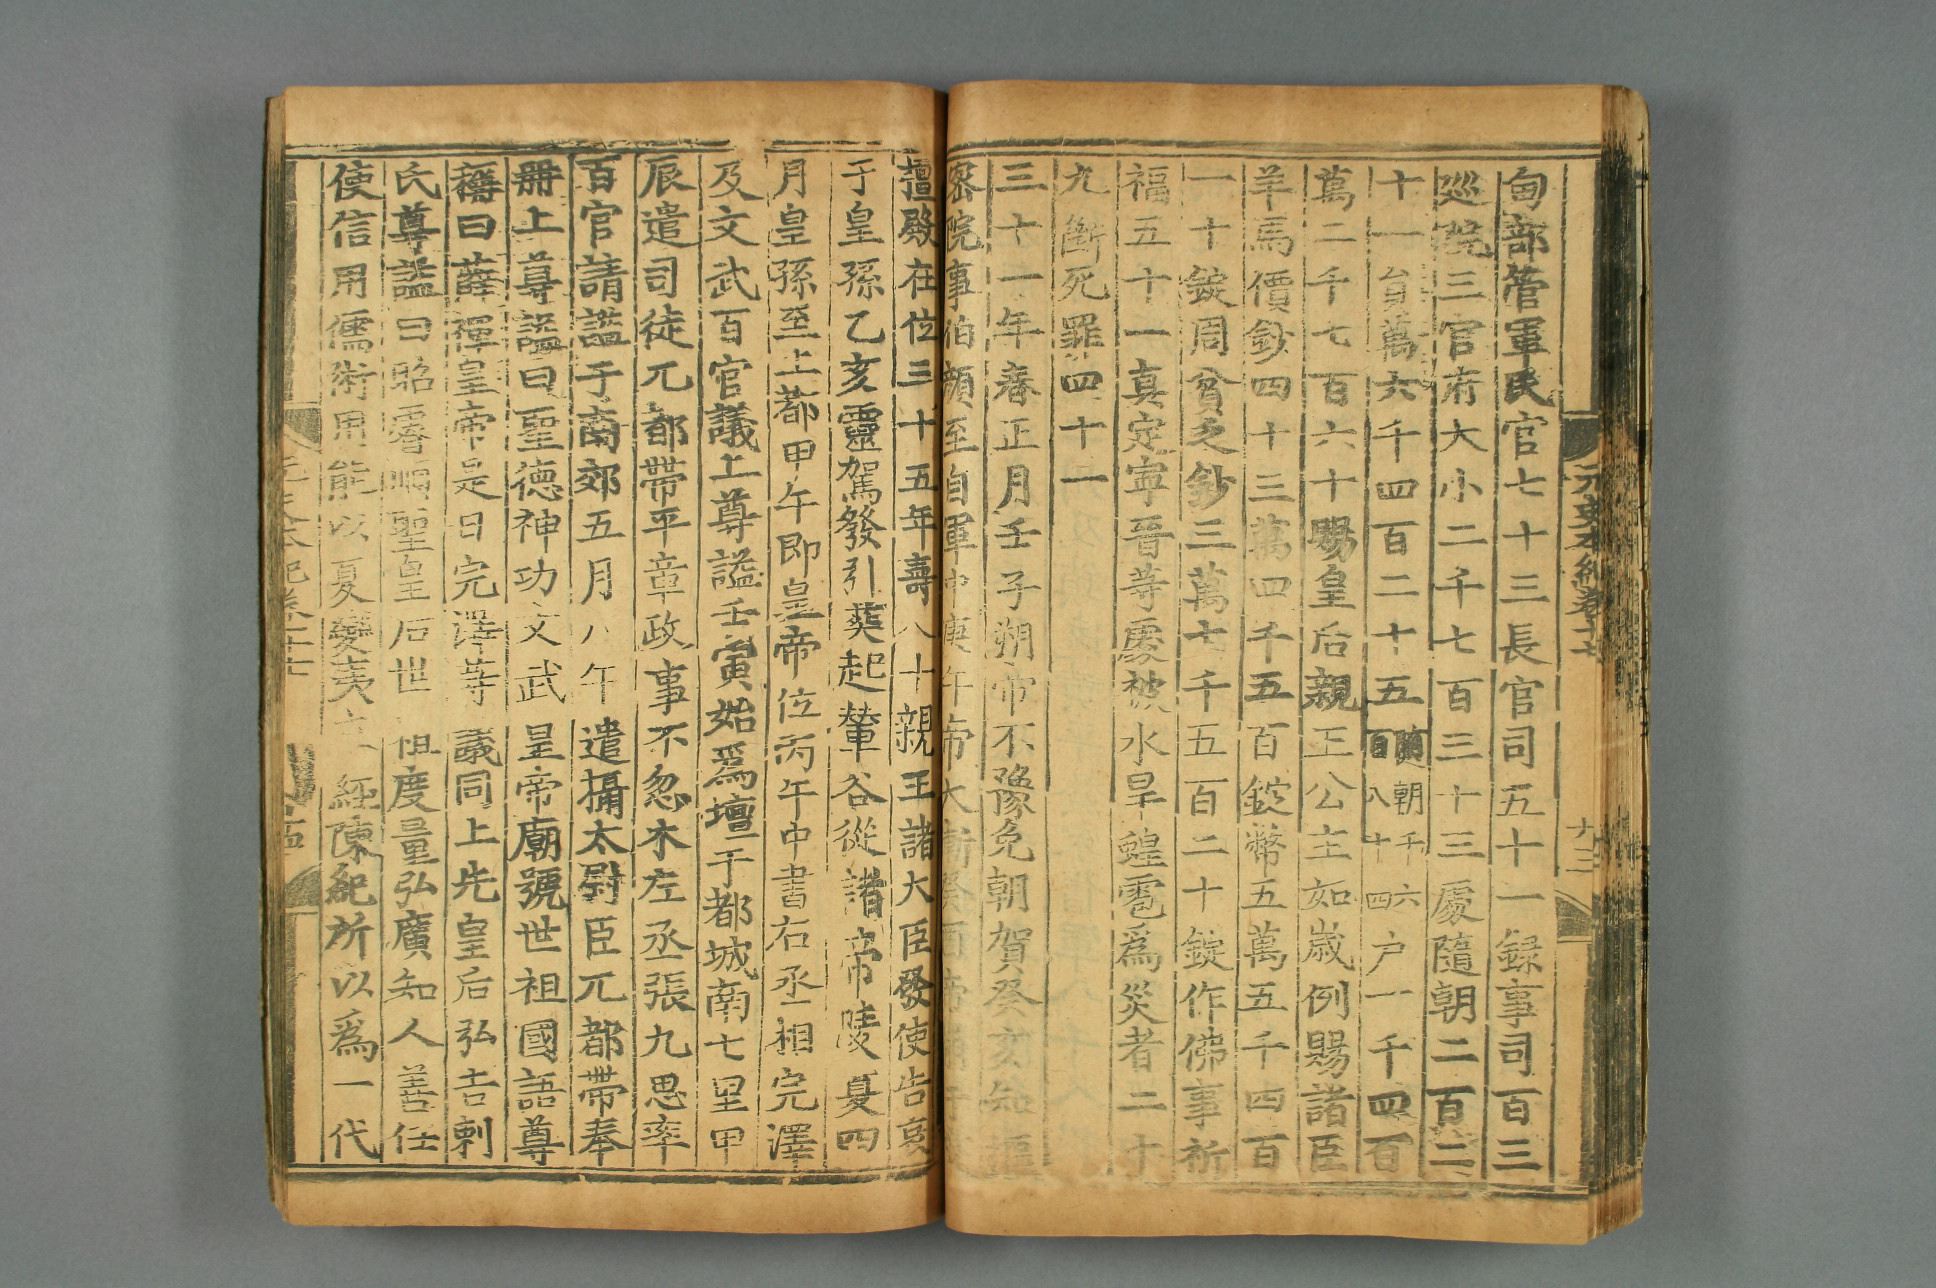 元史本紀卷十七
十三
甸部管軍民官七十三長官司五十一録事司百三
巡院三官府大小二千七百三十三處隨朝二百二
十一員萬六千四百二十五隨朝千六百八十四户一千四百
萬二千七百六十賜皇后親王公主如歲例賜諸臣
羊馬價鈔四十三萬四千五百錠幣五萬五千四百
一十錠周貧乏鈔三萬七千五百二十錠作佛事祈
福五十一真定寧晉等處被水旱蝗雹爲災者二十
九斷死罪四十一
三十一年春正月壬子朔帝不豫免朝賀癸亥知樞
密院事伯顏至自軍中庚午帝大漸癸酉帝崩于紫
檀殿在位三十五年壽八十親王諸大臣發使告哀
于皇孫乙亥靈駕發引葬起輦谷從諸帝陵夏四
月皇孫至上都甲午即皇帝位丙午中書右丞相完澤
及文武百官議上尊謚壬寅始爲壇于都城南七里甲
辰遣司徒兀都帶平章政事不忽木左丞張九思率
百官請謚于南郊五月戊午遣攝太尉臣兀都帶奉
冊上尊謚曰聖德神功文武皇帝廟號世祖國語尊
稱曰薛禪皇帝是日完澤等議同上先皇后弘吉剌
氏尊謚曰昭睿順聖皇后世祖度量弘廣知人善任
使信用儒術用能以夏變夷立經陳紀所以爲一代